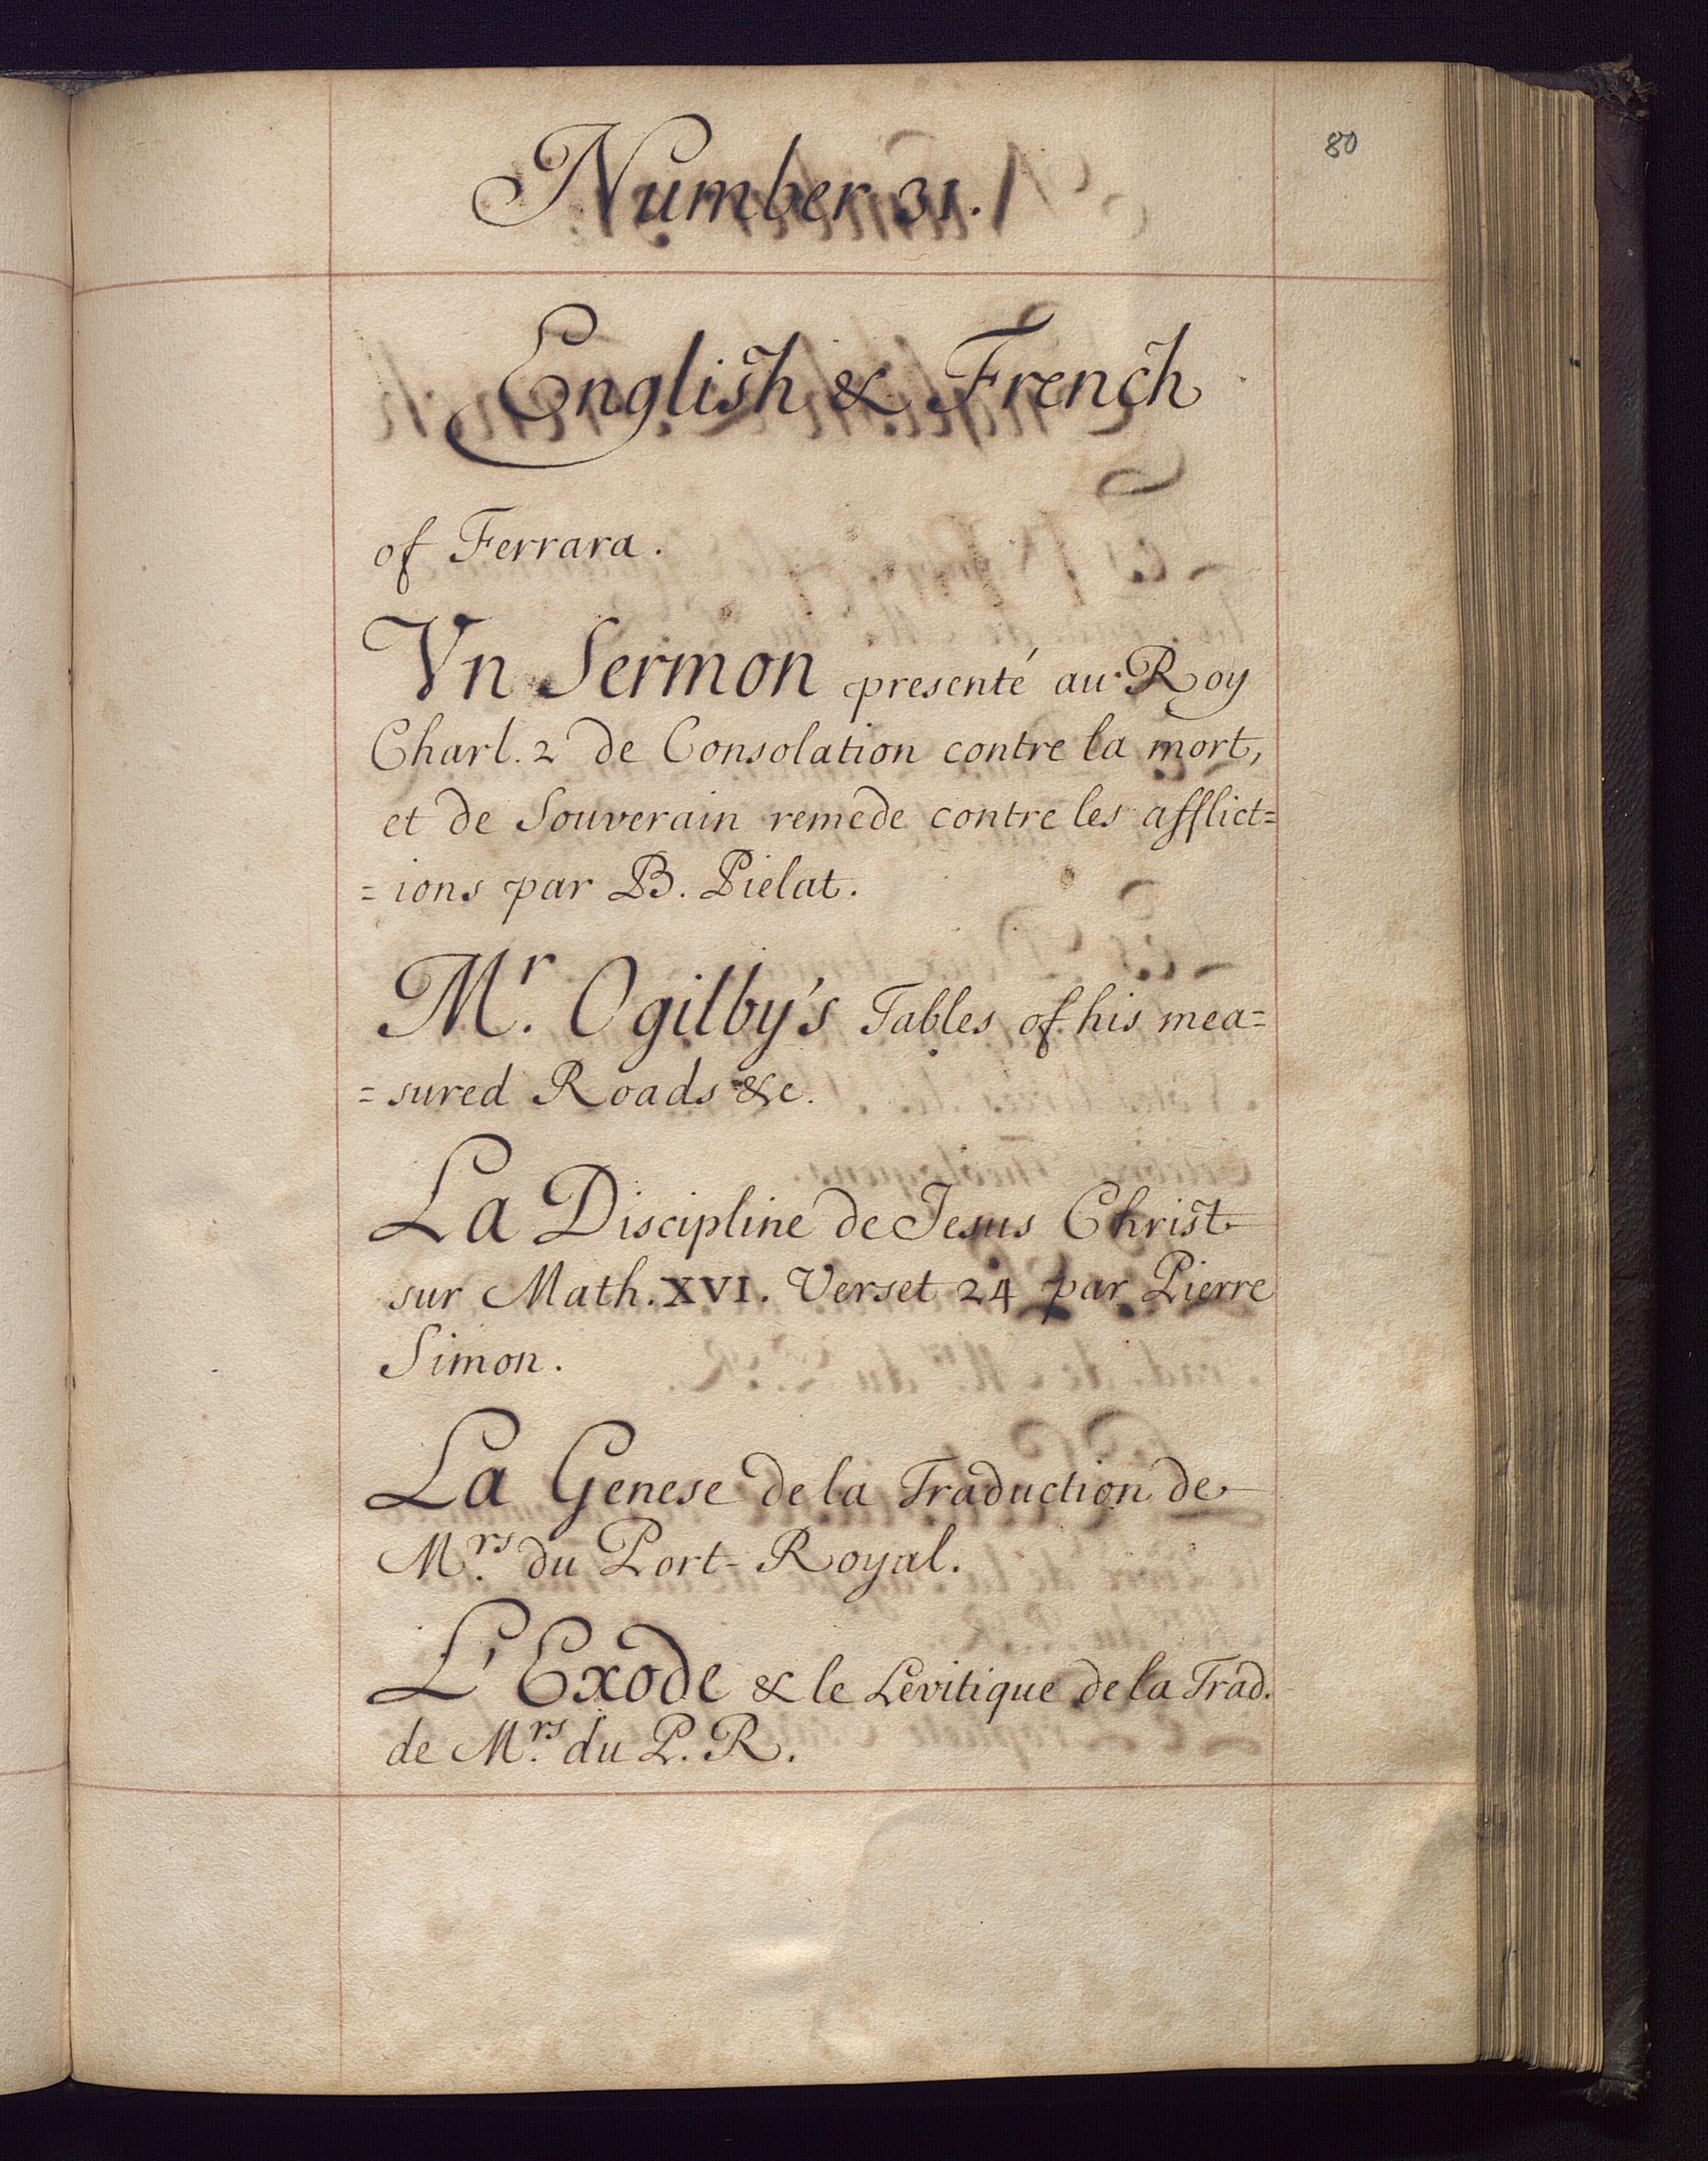 80
Number 31.
English & French
of Ferrara.
Vn Sermon presenté au Roy
Charl. 2 de Consolation contre la mort,
et de Souverain remede contre les afflict=
=ions par B. Pielat.
Mr. Ogilby's Tables of his mea=
=sured Roads &c.
La Discipline de Jesus Christ
sur Math. XVI. Verset 24 par Pierre
Simon.
La Genese de la Traduction de
Mrs. du Port-Royal.
L'Exode & le Levitique de la Trad.
de Mrs. du P. R.